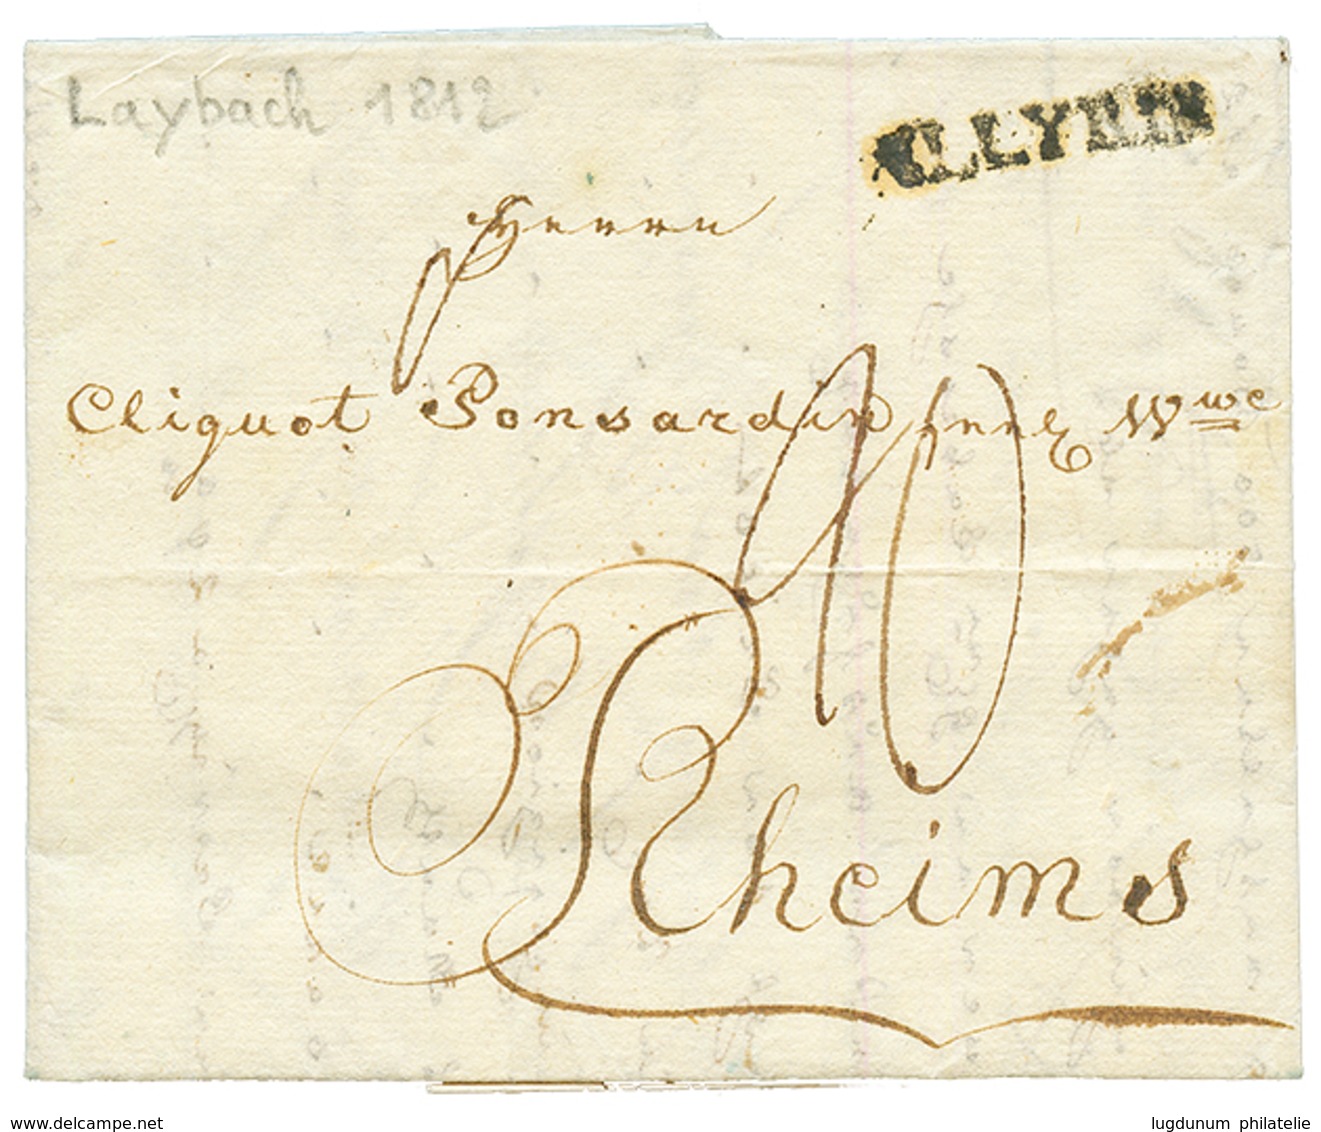 Laybach 1812
ILLYRIE
Herrn
Cliquot Ponsardin seel Wwe
Rheims
www.delcampe.net
lugdunum philatelie